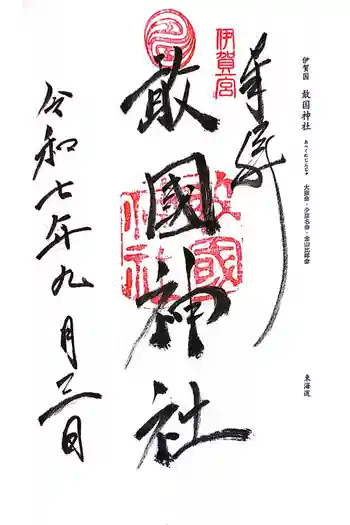 伊賀国 敢国神社
あへくにじんじゃ
大彦命・少彦名命・金山比咩命
東海道
奉拝
伊賀一宮
敢國神社
敢國神社
令和七年九月三日